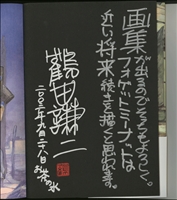 画集が出るのでそちらもよろしく。
フォゲットミーナットは
近い将来続きを描くと思われます。
鶴田謙二
二〇〇三年九月二八日
お茶の水